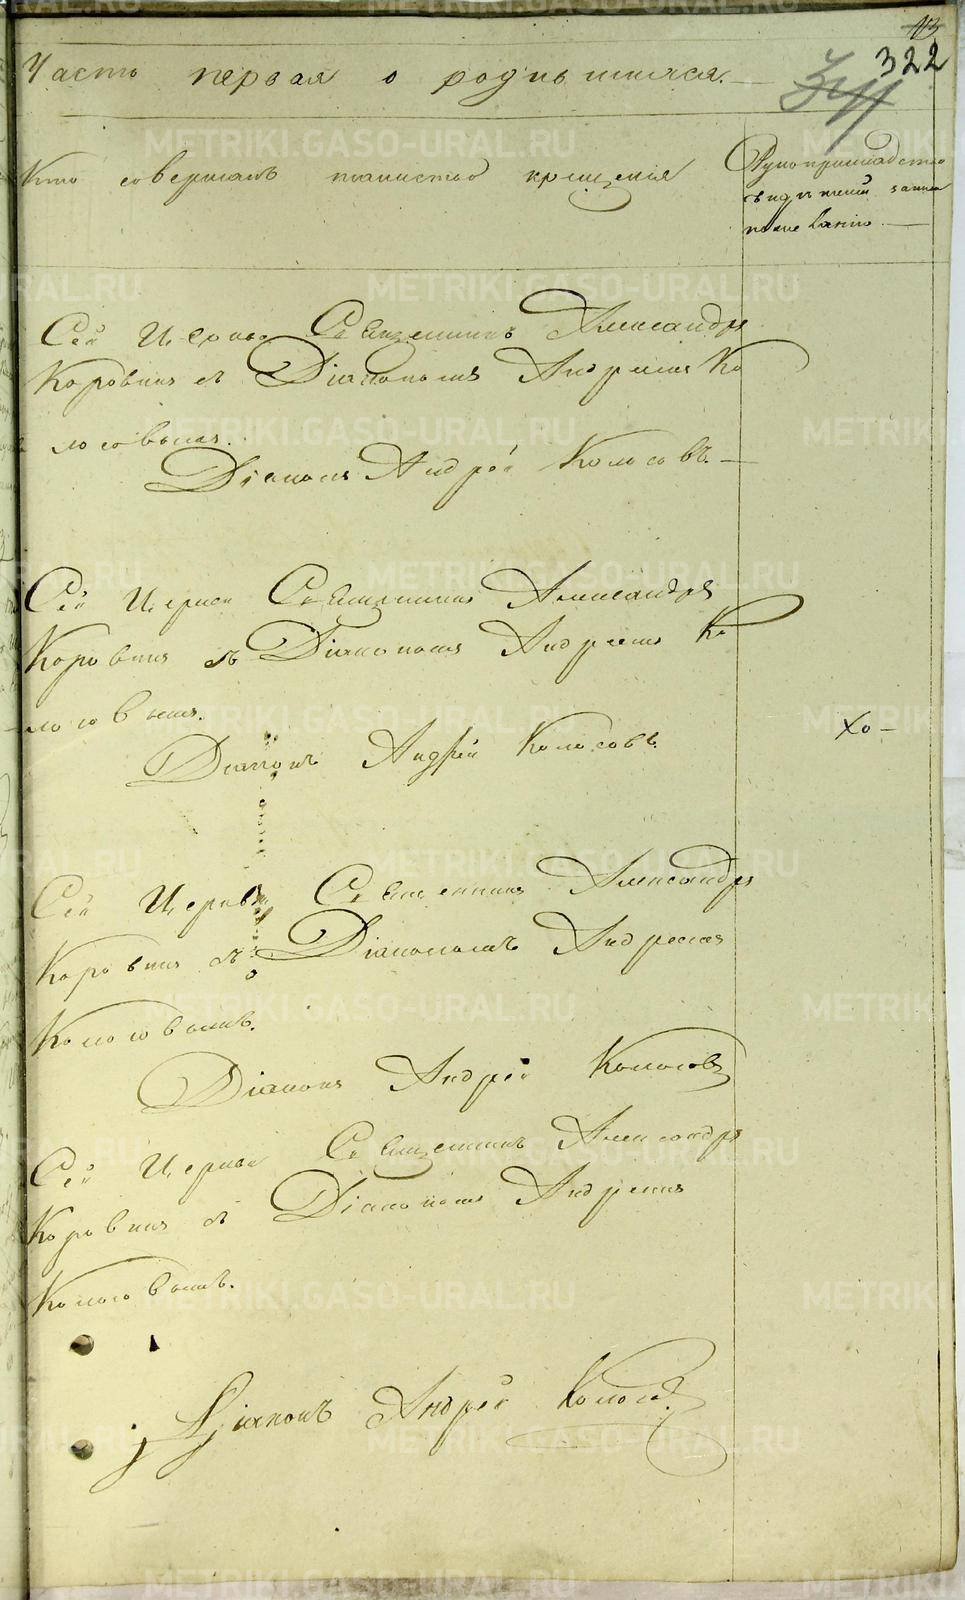 322
Часть первая о родившихся.
Кто совершалъ таинство крещенія
Рукоприкладство
свидетелей записи
по желанію
Сей Церкви Священникъ Александръ
Коровинъ съ Діакономъ Андреемъ Ко
лосовымъ.
Діаконъ Андрей Колосовъ.
Сей Церкви Священникъ Александръ
Коровинъ съ Діакономъ Андреемъ Ко
лосовымъ.
Діаконъ Андрей Колосовъ.
Хо
Сей Церкви Священникъ Александръ
Коровинъ съ Діакономъ Андреемъ
Колосовымъ.
Діаконъ Андрей Колосовъ
Сей Церкви Священникъ Александръ
Коровинъ съ Діакономъ Андреемъ
Колосовымъ.
Діаконъ Андрей Колосовъ
METRIKI.GASO-URAL.RU